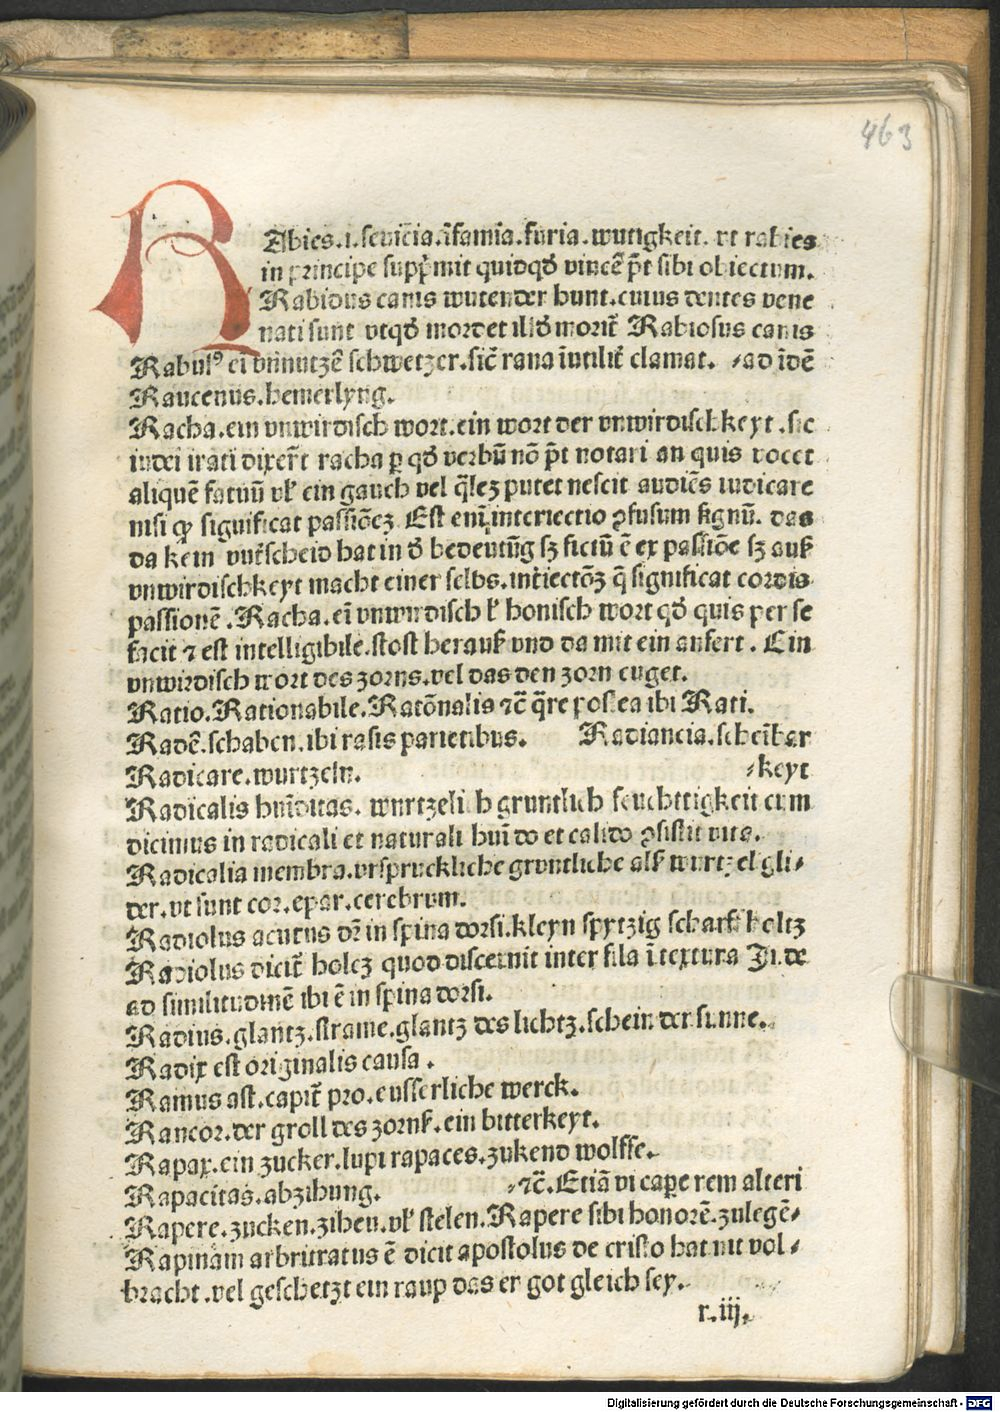 463
RAbies.i.seuicia.īfamīa.furia.wutigkeit. vt rabies
in principe supp̄mit quidqđ vincē p̄t sibi obiectum.
Rabidus canis wutender hunt.cuius dentes vene
nati sunt vtqđ mordet illđ morit̄ Rabiosus canis
Rabulꝰ eī vnnutzē schwetzer.sic̄ rana īutilit̄ clamat. ⸗ad īdē
Raucenus.hemerlyng.
Racha.ein vnwirdisch wort.ein wort der vnwirdischkeyt.sic
iudei irati dixer̄t racha ꝑ qđ verbū nō p̄t notari an quis vocet
aliquē fatuū vł ein gauch vel q̄lez putet nescit audiēs iudicare
nisi ꝙ significat passiōez Est enī interiectio ꝓfusum signū. das
da kein vnt̄scheid hat in đ bedeutūg sz fictū ē ex passiōe sz auß
vnwirdischkeyt macht einer selbs.int̄iectōz q̄ significat cordis
passionē.Racha.eī vnwirdisch ł honisch wort qđ quis per se
facit ⁊ est intelligibile.stost herauß vnd da mit ein anfert. Ein
vnwirdisch wort des zorns.vel das den zorn euget.
Ratio.Rationabile.Ratōnalis ⁊c̄ q̄re postea ibi Rati.
Radē.schaben.ibi rasis parietibus. Radiancia.scheībar
Radicare.wurtzeln. ⸗keyt
Radicalis hūiditas. wurtzelich gruntlich feuchttigkeit cum
dicimus in radicali et naturali hūido et calido ꝓsistit vita.
Radicalia membra.vrspruckliche gruntliche alß wurtzel gli⸗
der.vt sunt cor.epar.cerebrum.
Radiolus acutus dr̄ in spina dorsi.kleyn spytzig scharf holtz
Radiolus dicit̄ holcz quod discernit inter fila ī textura In.de
ad similitudinē ibi ē in spina dorsi.
Radius.glantz.strame.glantz des lichtz.schein der sunne.
Radix est originalis causa.
Ramus ast.capit̄ pro.eusserliche werck.
Rancor.der groll des zornß.ein bitterkeyt.
Rapax.ein zucker.lupi rapaces.zukend wolffe.
Rapacitas.abzihung. ⸗⁊c̄.Etiā vi capere rem alteri
Rapere.zucken.ziheu.vł stelen.Rapere sibi honorē.zulegē⸗
Rapinam arbritratus ē dicit apostolus de cristo hat nit vol⸗
bracht.vel geschetzt ein raup das er got gleich sey.
r.iij.
Digitalisierung gefördert durch die Deutsche Forschungsgemeinschaft - DFG